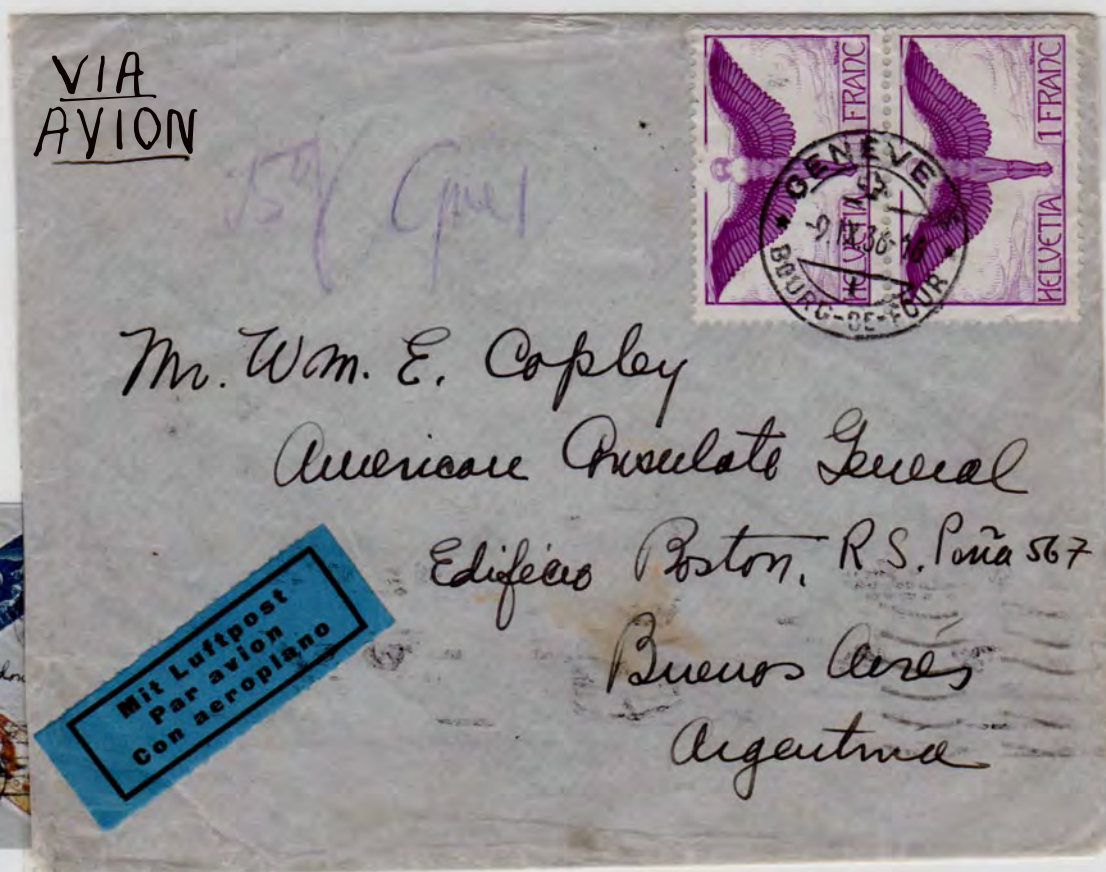 VIA
AVION
1 FRANC
HELVETIA
1 FRANC
HELVETIA
GENÈVE
-9.IX.36-16
BOURG-DE-FOUR
Mr. Wm. E. Copley
American Consulate General
Edificio Boston, R. S. Peña 567
Buenos Aires
Argentina
Mit Luftpost
Par avion
Con aeroplano